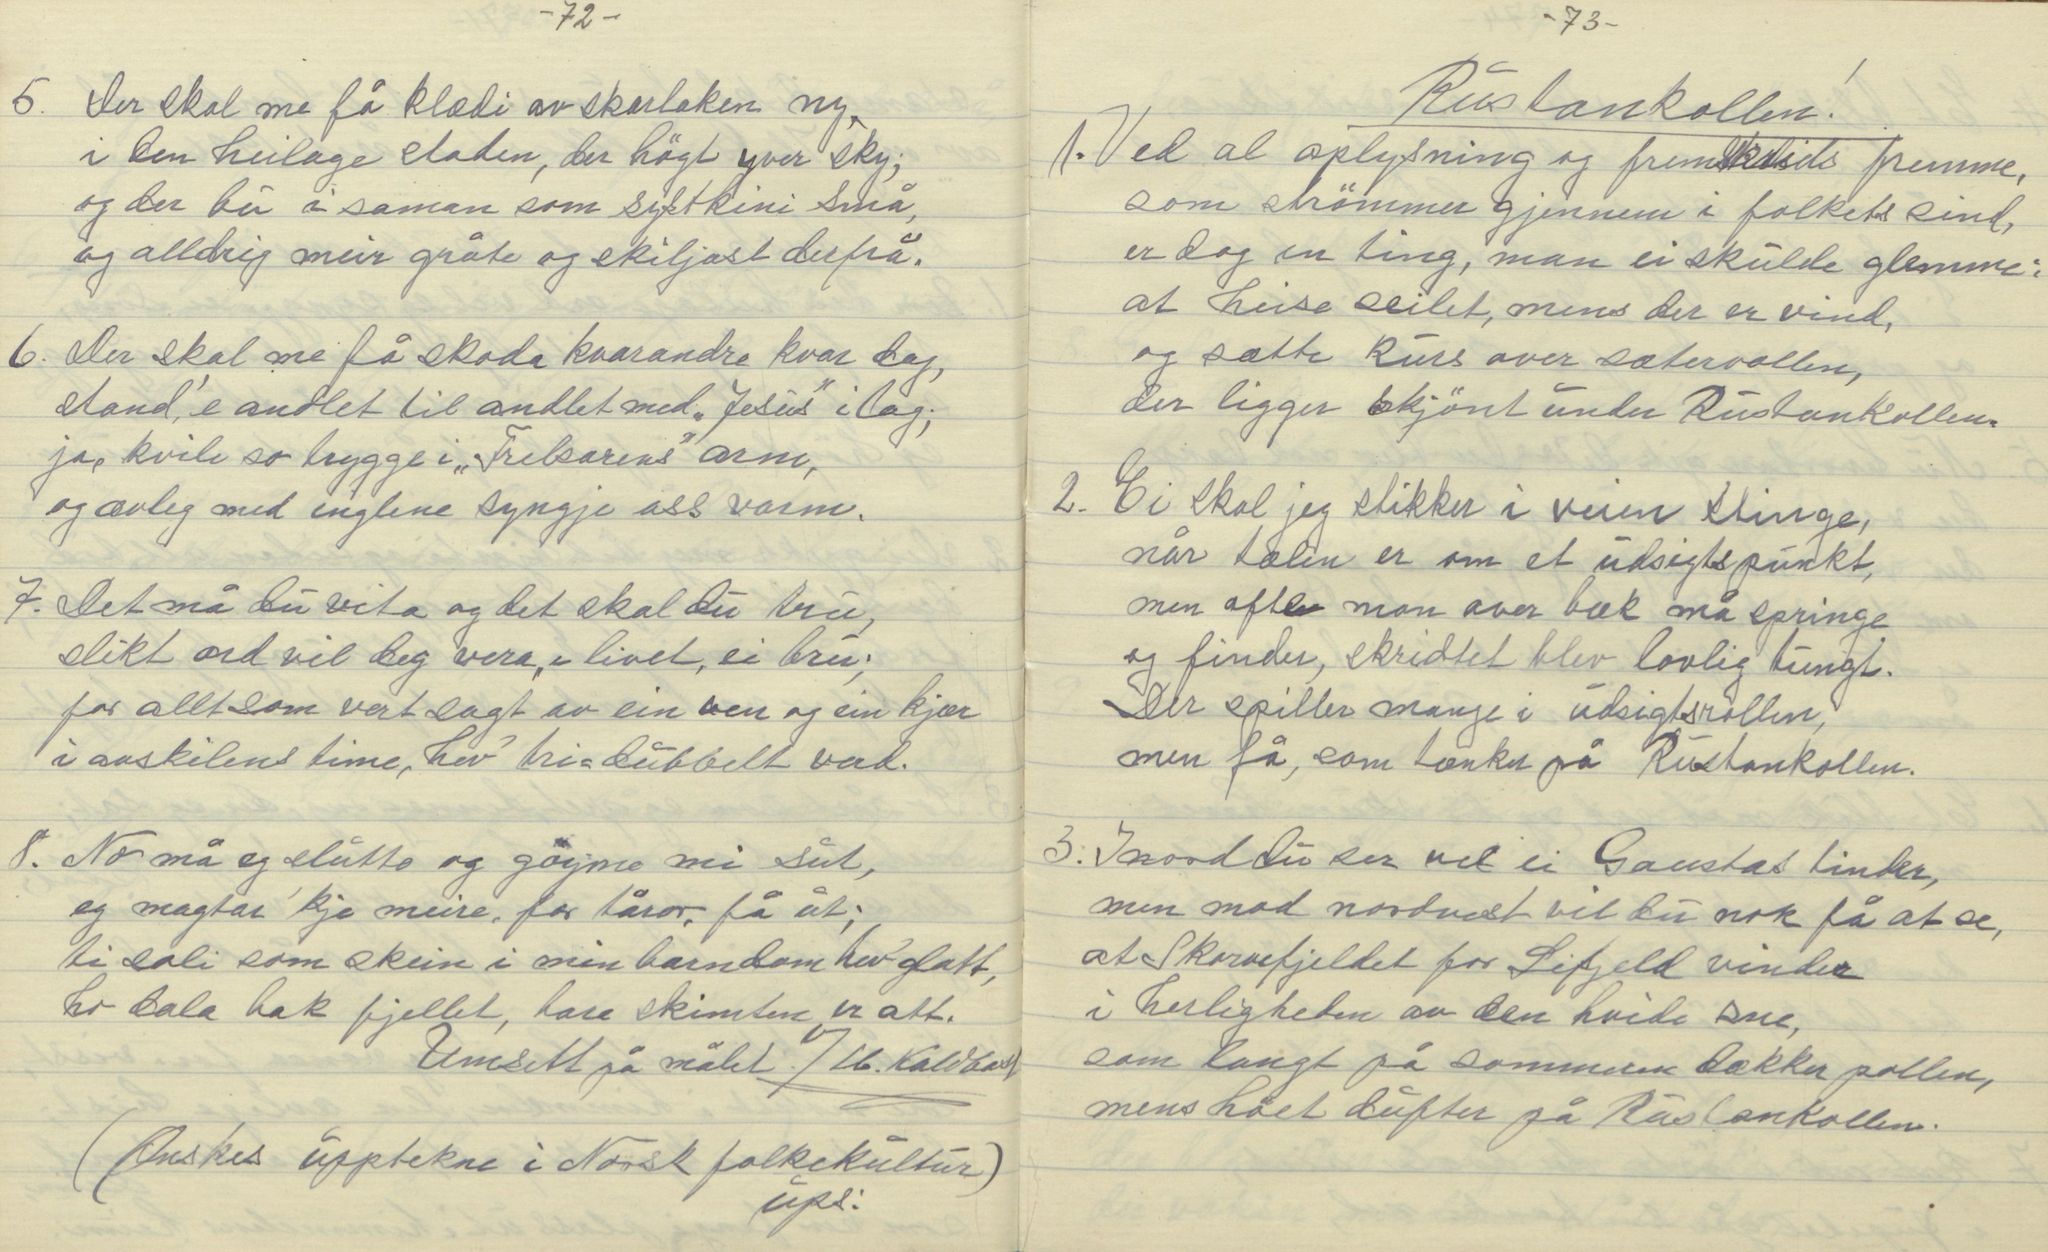 -72-
5. Der skal me få klædi av skarlaken ny,
i den heilage staden, der högt yver sky;
og der bu å saman som systkini små,
og alldrig meir gråte og skiljast derfrå.
6. Der skal me få skoda kvarandre kvar dag,
stand' e andlet til andlet med „Jesus" i lag;
ja, kvile so trygge i „Frelsarens" arm,
og ævleg med englene syngje oss varm.
7. Det må du vita og det skal du tru,
slikt ord vil deg vera, e livet, ei bru;
for allt som vert sagt av ein ven og ein kjær
i avskilens time, hev' tri=dubbelt verd.
8. No må eg slutta og göyme mi sut,
eg magtar 'kje meire, for tåror, få ut;
ti soli som skein i min barndom hev' glatt,
ho dala bak fjellet, bare skimten er att.
Umsett på målet /
(Ønskes upptekne i Norsk folkekultur)
ups:
-73-
Rustankollen!
1. Ved al oplysning og fremskridts fremme,
som strömmer gjennem i folkets sind,
er dog en ting, man ei skulde glemme:
at heise seilet, mens der er vind,
og sætte kurs over sætervollen,
der ligger skjönt under Rustankollen.
2. Ei skal jeg stikker i veien stinge,
når talen er om et udsigtspunkt,
men ofte man over bæk må springe
og finder, skridtet blev lovlig tungt.
Der spiller mange i udsigtsrollen,
men få, som tænker på Rustankollen.
3. I nord du ser vel ei Gaustas tinder,
men mod nordvest vil du nok få at se,
at Skorvefjeldet for Lifjeld vinder
i herligheden av den hvide sne,
som langt på sommeren dækker pollen,
mens höet dufter på Rustankollen.